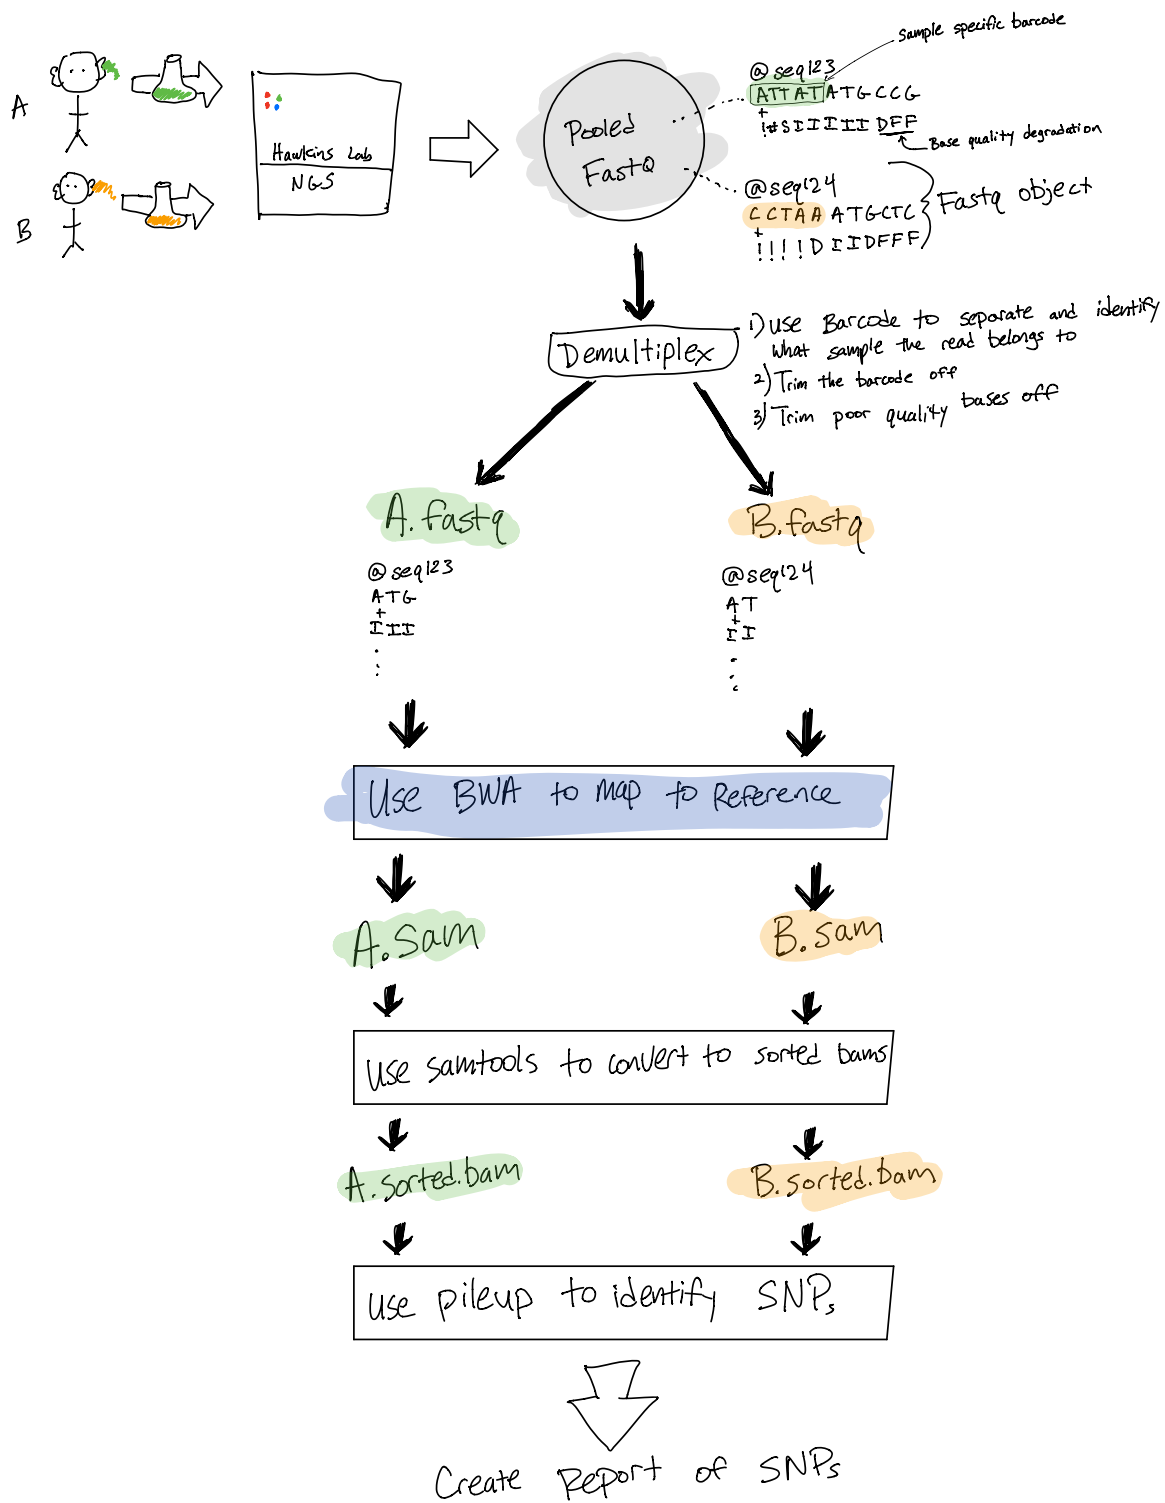 A
B
Hawkins Lab
NGS
Pooled
FastQ
Sample specific barcode
@seq123
ATTATATGCCG
+
!#SIIIIIDFF
Base quality degradation
@seq124
CCTAAATGCTC
+
!!!!DIIDFFF
Fastq object
Demultiplex
1) Use Barcode to separate and identify
what sample the read belongs to
2) Trim the barcode off
3) Trim poor quality bases off
A.fastq
@seq123
ATG
+
III
B.fastq
@seq124
AT
+
II
Use BWA to map to Reference
A.sam
B.sam
Use samtools to convert to sorted bams
A.sorted.bam
B.sorted.bam
Use pileup to identify SNPs
Create Report of SNPs